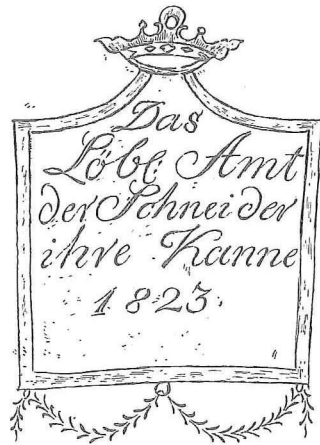 Das
Löbl: Amt
der Schneider
ihre Kanne
1823.